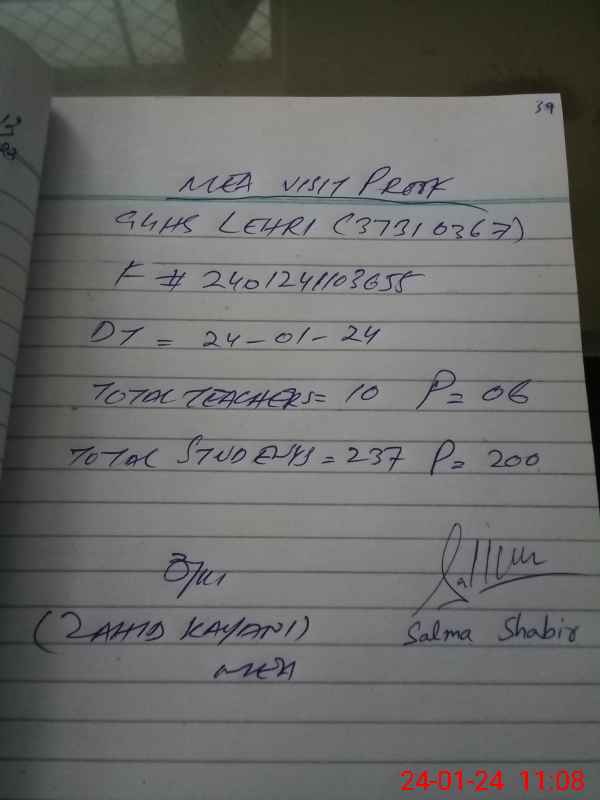 39
MEA VISIT PROOF
GGHS LEHRI (37310367)
F # 2401241103655
DT = 24-01-24
TOTAL TEACHERS = 10 P = 06
TOTAL STUDENTS = 237 P = 200
(ZAHID KAYANI) Salma Shabir
MEA
24-01-24 11:08